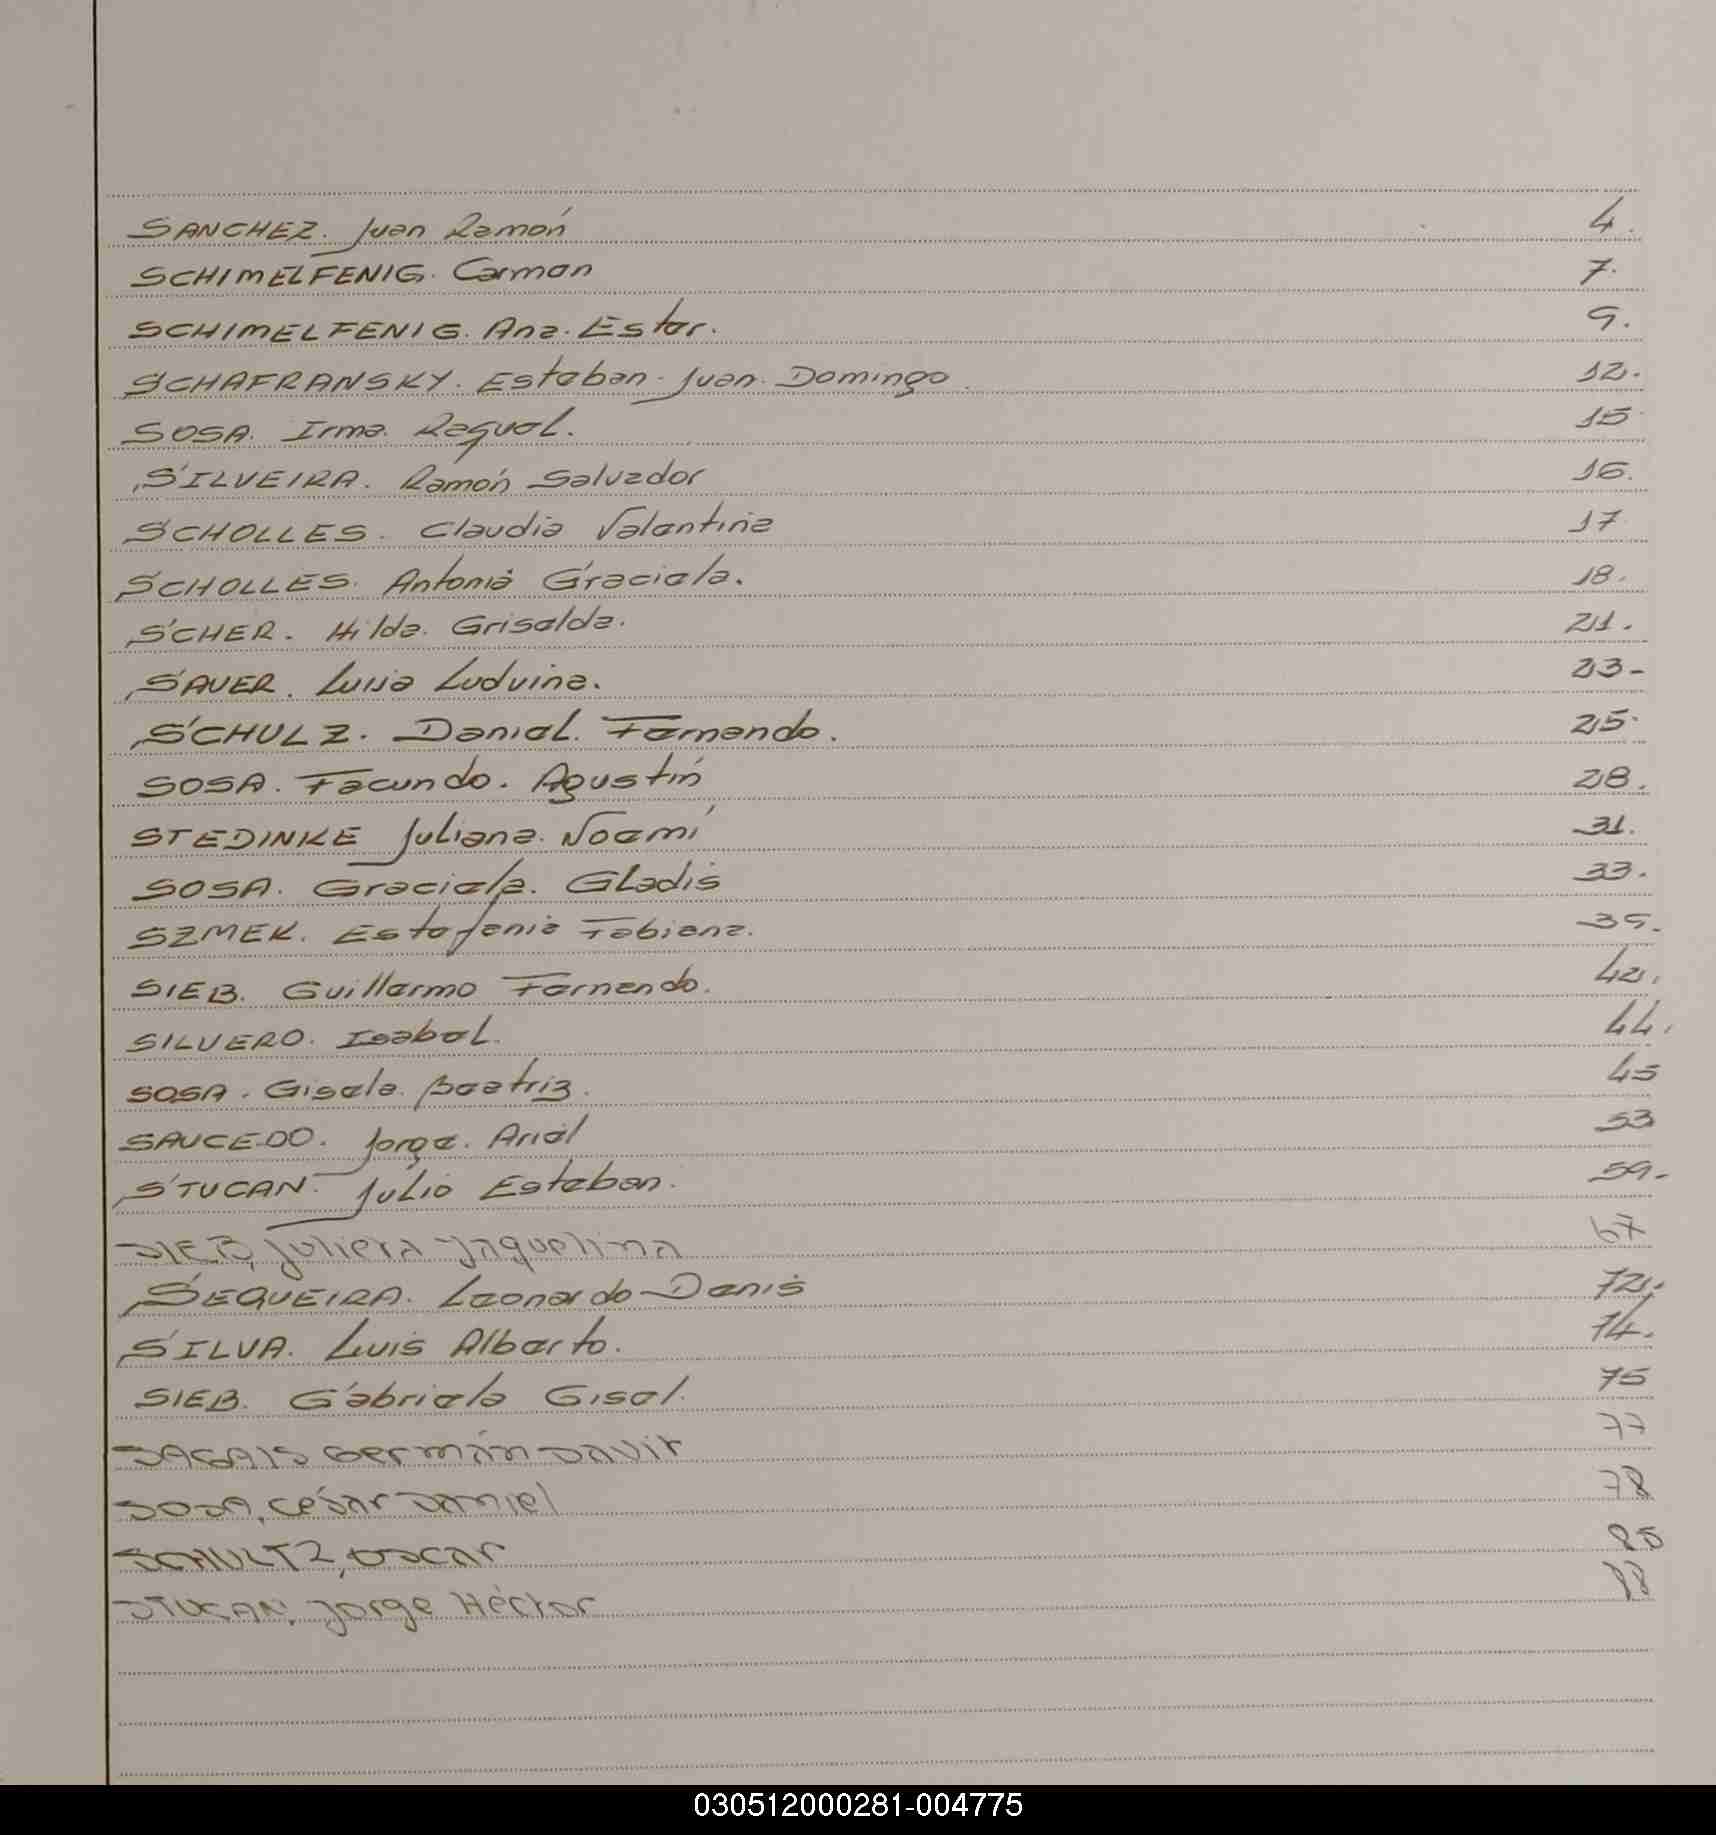 SANCHEZ. Juan Ramón 4.
SCHIMELFENIG. Carmen 7.
SCHIMELFENIG. Ana. Ester. 9.
SCHAFRANSKY. Esteban. Juan. Domingo. 12.
SOSA. Irma. Raquel. 15
SILVEIRA. Ramón Salvador 16.
SCHOLLES. Claudia Valentina 17
SCHOLLES. Antonia Graciela. 18.
SCHER. Hilda. Griselda. 21.
SAUER. Luisa Luduina. 23-
SCHULZ. Daniel. Fernando. 25.
SOSA. Facundo. Agustín 28.
STEDINKE Juliana. Noemí 31.
SOSA. Graciela. Gladis 33.
SZMEK. Estefania Fabiana. 39.
SIEB. Guillermo Fernando. 42.
SILVERO. Isabel. 44.
SOSA. Gisela. Beatriz. 45
SAUCEDO. Jorge. Ariel 53
STUCAN. Julio Esteban. 59.
SIEB, Julieta Jaquelina 67
SEQUEIRA. Leonardo Denis 72.
SILVA. Luis Alberto. 74.
SIEB. Gabriela Gisel. 75
Germán David 77
SOSA, César Daniel 78
SCHULTZ, Oscar 85
STUCAN, Jorge Héctor 88
030512000281-004775